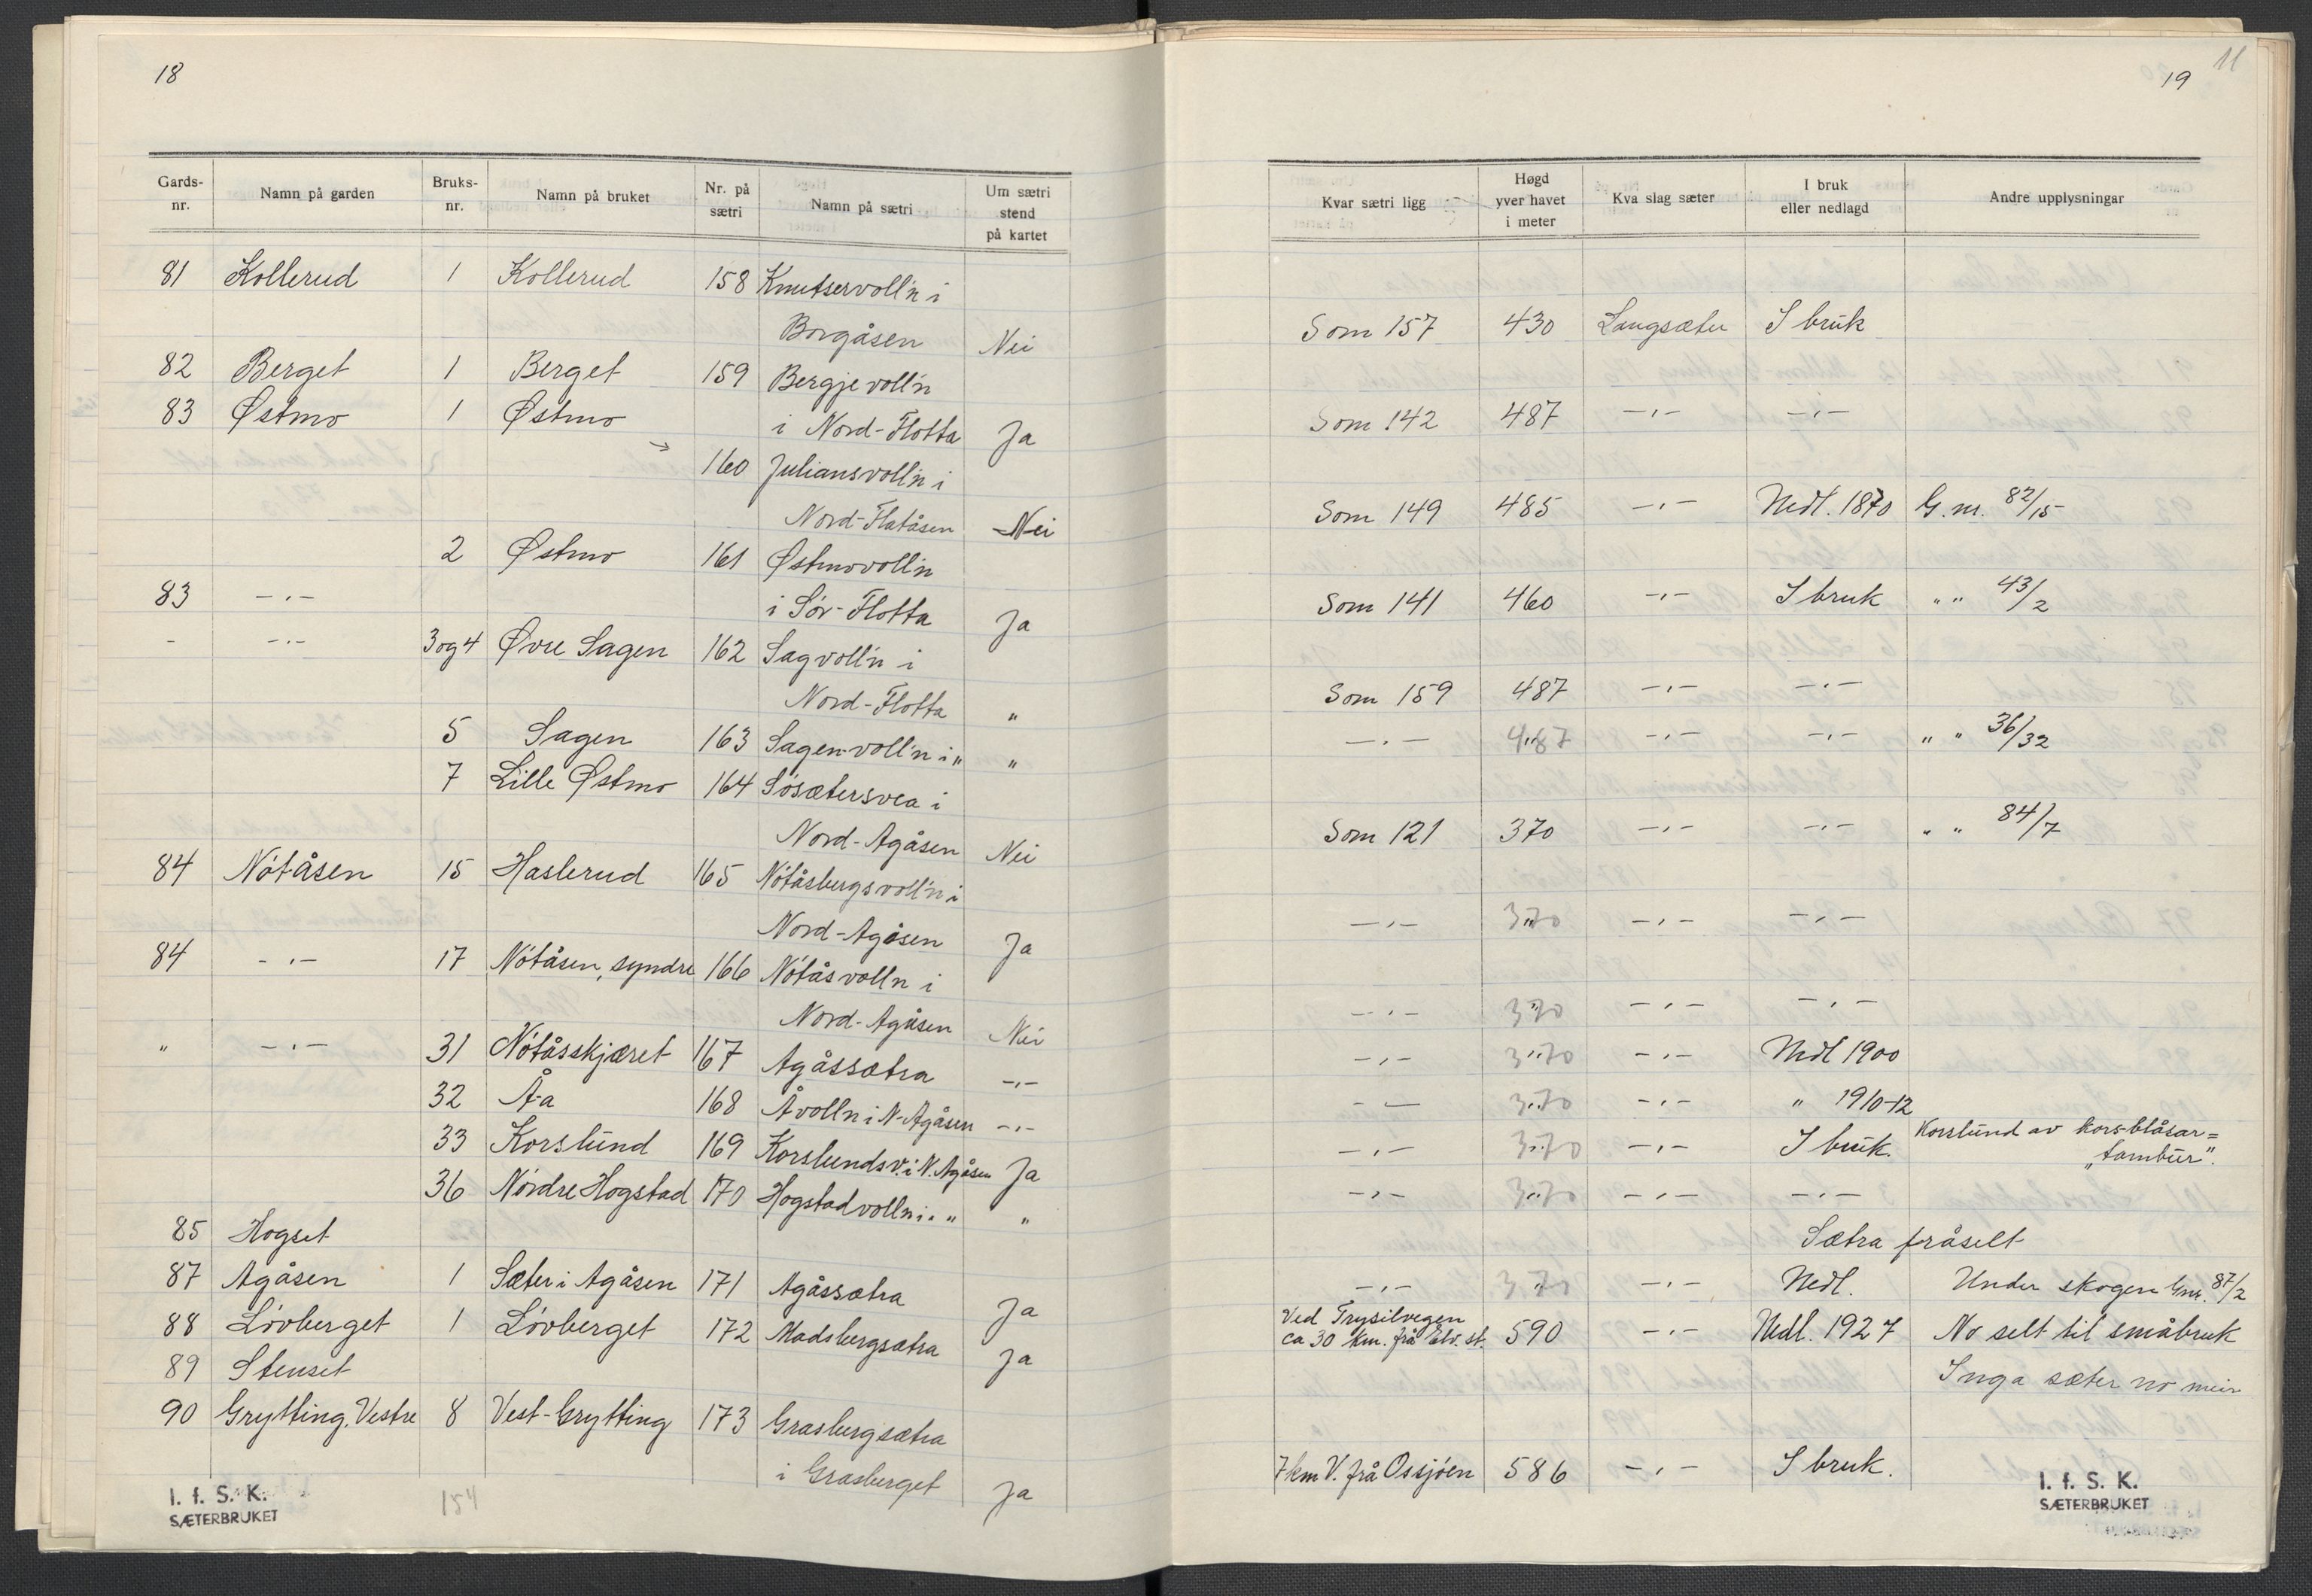 18
Gards-nr. Namn på garden Bruks-nr. Namn på bruket Nr. på sætri Namn på sætri Um sætri stend på kartet
81 Kollerud 1 Kollerud 158 Knutservoll'n i
Borgåsen Nei
82 Berget 1 Berget 159 Bergjevoll'n
83 Østmo 1 Østmo i Nord-Flotta Ja
160 Juliansvoll'n i
Nord-Flatåsen Nei
2 Østmo 161 Østmovoll'n
83 -"- i Sør-Flotta Ja
- -"- 3 og 4 Øvre Sagen 162 Sagvoll'n i
Nord-Flotta "
5 Sagen 163 Sagen-voll'n i " "
7 Lille Østmo 164 Søsætersvea i
Nord-Agåsen Nei
84 Nøtåsen 15 Haslerud 165 Nøtåsbergsvoll'n i
Nord-Agåsen Ja
84 -"- 17 Nøtåsen, syndre 166 Nøtåsvoll'n i
Nord-Agåsen Nei
" -"- 31 Nøtåsskjæret 167 Agåssætra -"-
32 Åa 168 Åvoll'n i N-Agåsen -"-
33 Korslund 169 Korslundsv. i N. Agåsen Ja
36 Nordre Hogstad 170 Hogstadvolln i " "
85 Hogset
87 Agåsen 1 Sæter i Agåsen 171 Agåssætra Ja
88 Løvberget 1 Løvberget 172 Madsbergsætra Ja
89 Stenset
90 Grytting, Vestre 8 Vest-Grytting 173 Grasbergsætra
i Grasberget Ja
I. f. S. K.
SÆTERBRUKET
154
11
19
Kvar sætri ligg Høgd yver havet i meter Kva slag sæter I bruk eller nedlagd Andre upplysningar
Som 157 430 Langsæter I bruk
Som 142 487 -"- -"-
Som 149 485 -"- Nedl. 1870 G.nr. 82/15
Som 141 460 -"- I bruk " " 43/2
Som 159 487 -"- -"-
-"- 487 -"- -"- " " 36/32
Som 121 370 -"- -"- " " 84/7
-"- 370 -"- -"-
-"- 370 -"- -"-
-"- 370 -"- Nedl 1900
-"- 370 -"- " 1910-12
-"- 370 -"- I bruk. Korslund av kors-blåsar=
"tambur".
-"- 370 -"- -"-
Sætra fråselt
-"- 370 -"- Nedl. Under skogen Gnr. 87/2
Ved Trysilvegen
ca 30 km. frå Elv. st. 590 -"- Nedl. 1927 No selt til småbruk
Inga sæter no meir
7 km V. frå Ossjøen 586 -"- I bruk.
I. f. S. K.
SÆTERBRUKET